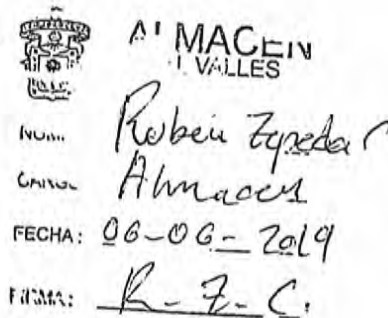 ALMACEN
VALLES
Ruben Zepeda C
Almacen
FECHA: 06-06-2019
FIRMA: R-Z-C.